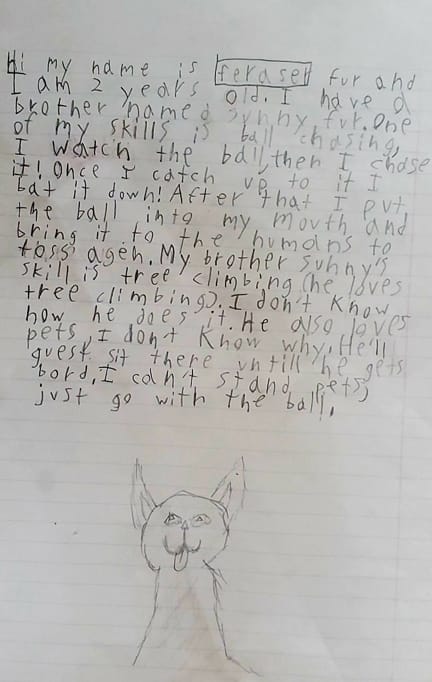 Hi my name is feraser fur and
I am 2 years old. I have a
brother named sunny fur. One
of my skills is ball chasing,
I watch the ball, then I chase
it! Once I catch up to it I
bat it down! After that I put
the ball into my mouth and
bring it to the humans to
toss agen. My brother sunny's
skill is tree climbing (he loves
tree climbing). I don't know
how he does it. He also loves
pets I don't know why. He'll
guest sit there untill he gets
bord. I can't stand pets,
just go with the ball.